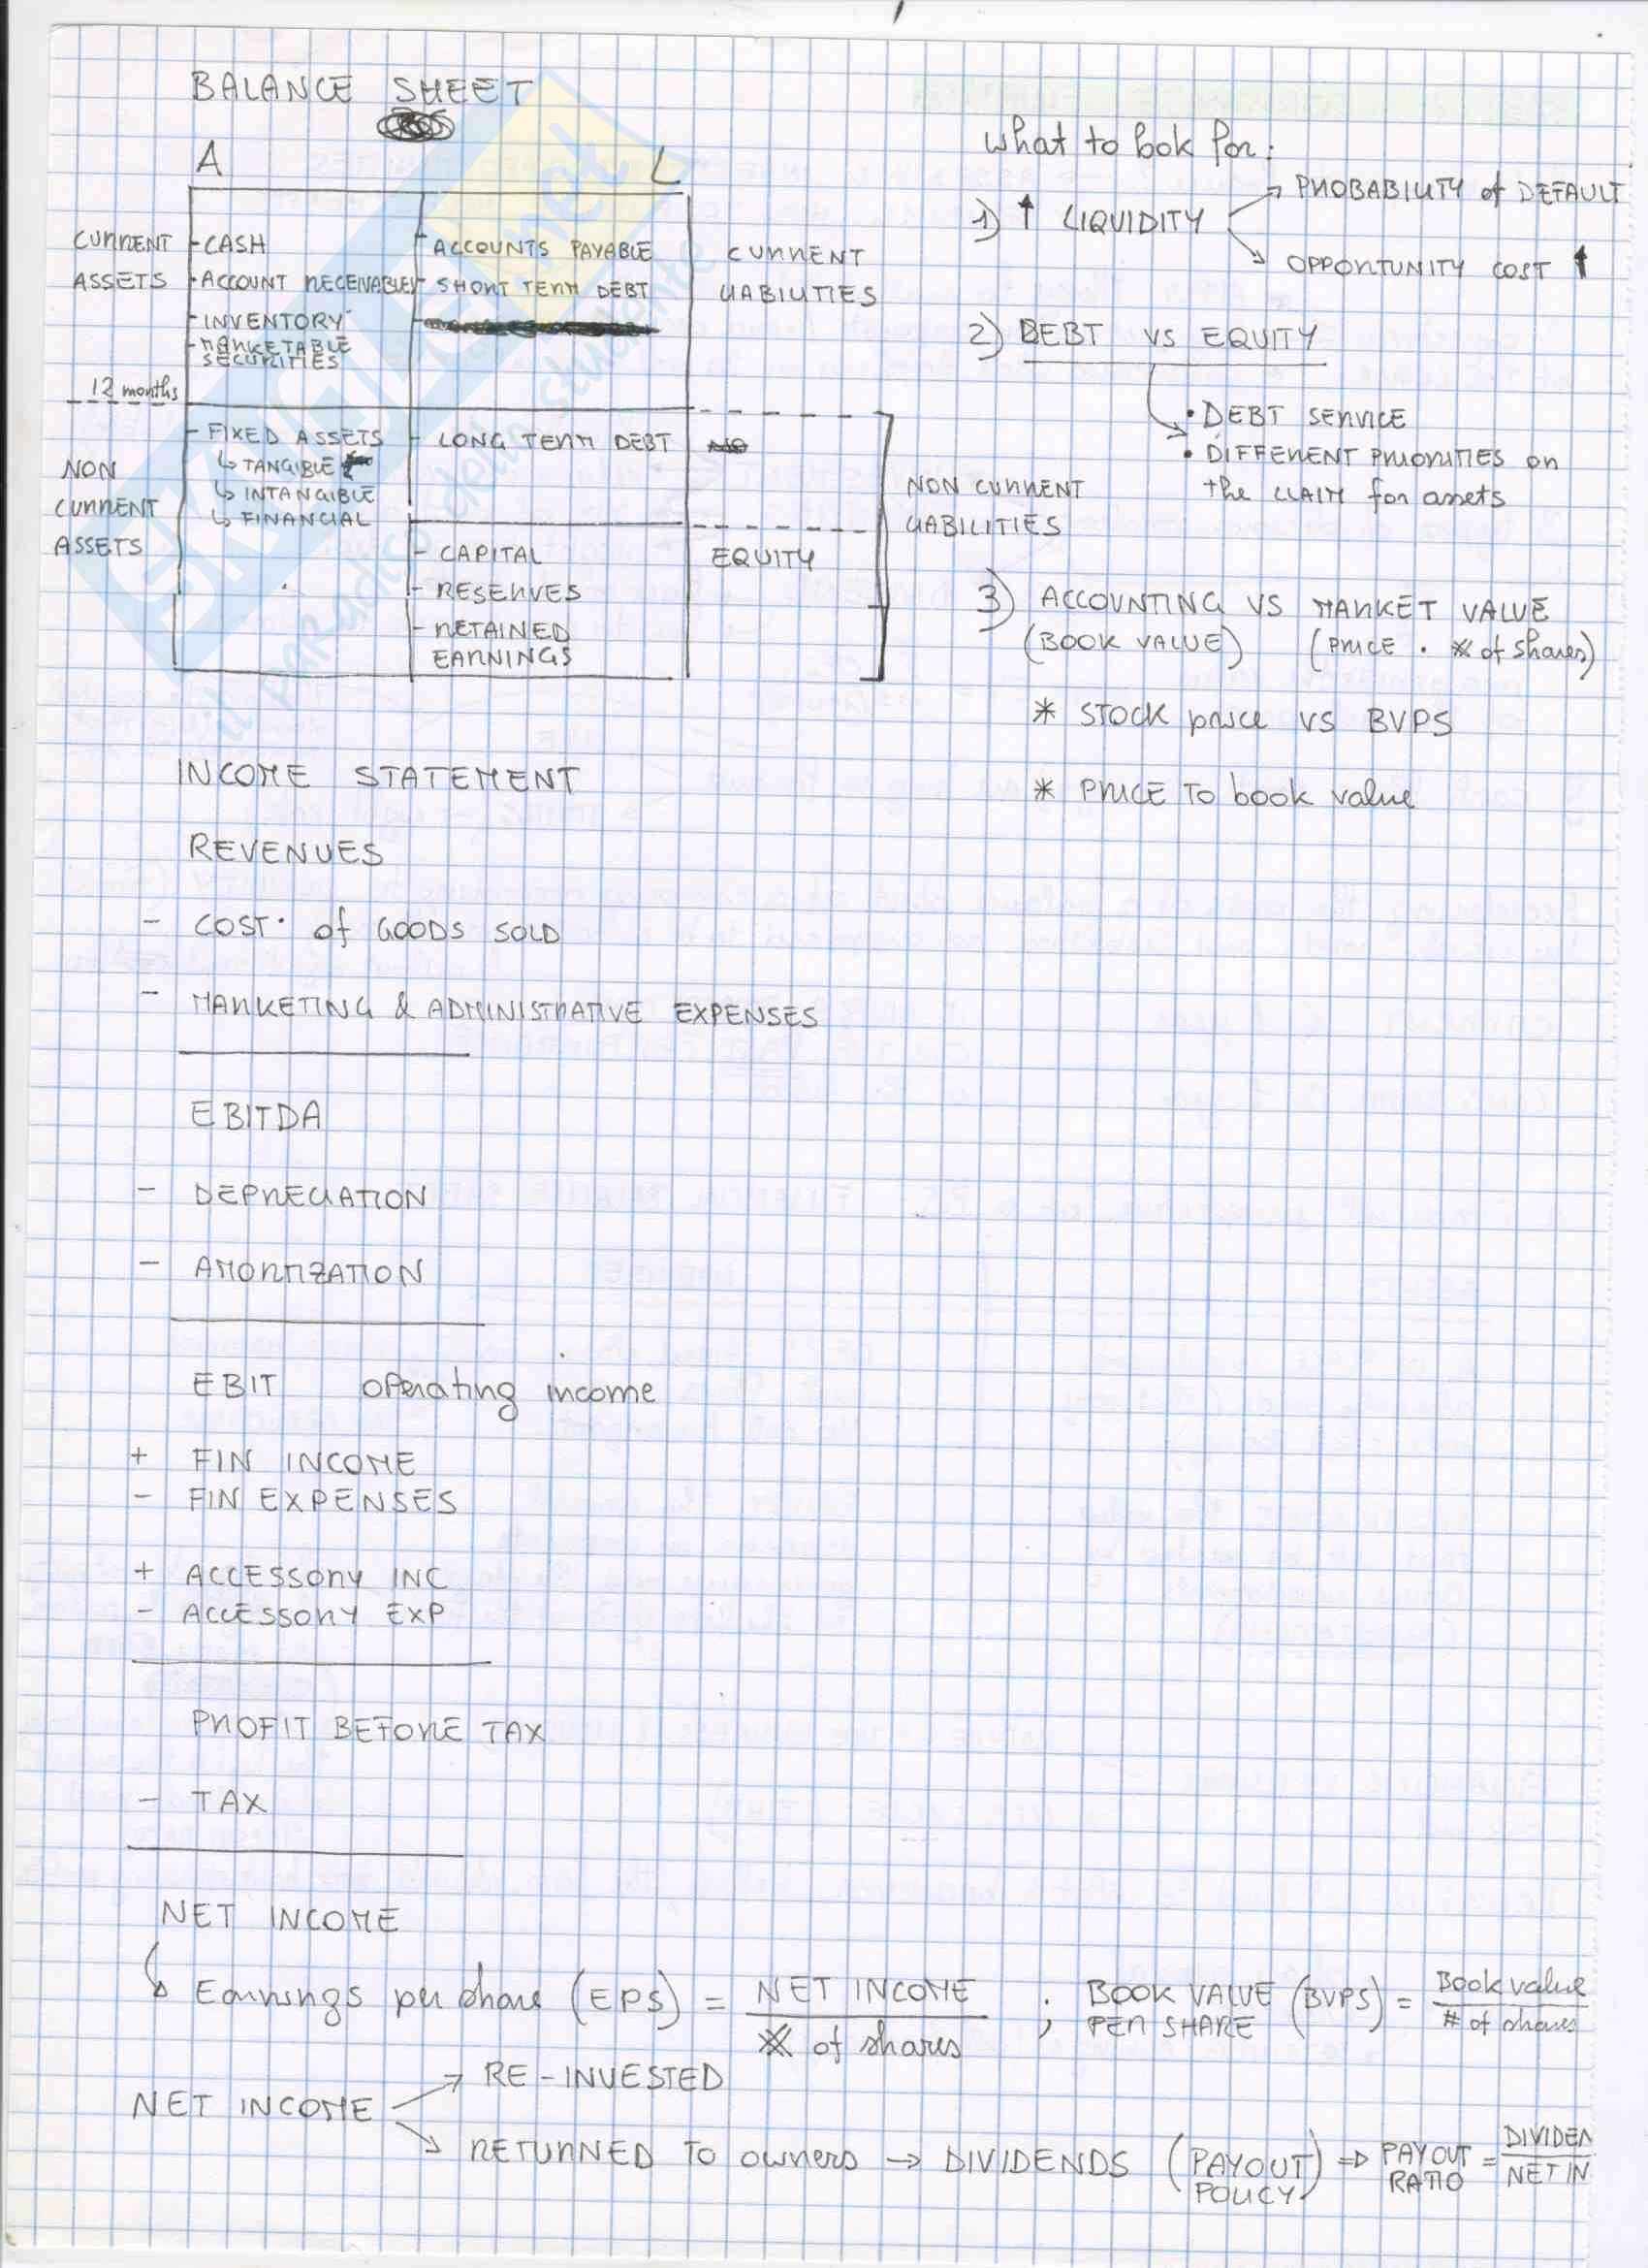 BALANCE SHEET
A L
CURRENT ASSETS
- CASH
- ACCOUNT RECEIVABLES
- INVENTORY
- MARKETABLE SECURITIES
- ACCOUNTS PAYABLE
- SHORT TERM DEBT
CURRENT LIABILITIES
12 months
NON CURRENT ASSETS
- FIXED ASSETS
↳ TANGIBLE
↳ INTANGIBLE
↳ FINANCIAL
- LONG TERM DEBT
NON CURRENT LIABILITIES
- CAPITAL
- RESERVES
- RETAINED EARNINGS
EQUITY
What to look for:
1) ↑ LIQUIDITY
→ PROBABILITY of DEFAULT
→ OPPORTUNITY COST ↑
2) DEBT VS EQUITY
• DEBT SERVICE
• DIFFERENT PRIORITIES on
the CLAIM for assets
3) ACCOUNTING VS MARKET VALUE
(BOOK VALUE) (PRICE · # of shares)
* STOCK price VS BVPS
* PRICE TO book value
INCOME STATEMENT
REVENUES
- COST of GOODS SOLD
- MARKETING & ADMINISTRATIVE EXPENSES
EBITDA
- DEPRECIATION
- AMORTIZATION
EBIT operating income
+ FIN INCOME
- FIN EXPENSES
+ ACCESSORY INC
- ACCESSORY EXP
PROFIT BEFORE TAX
- TAX
NET INCOME
↳ Earnings per share (EPS) = NET INCOME / # of shares ; BOOK VALUE PER SHARE (BVPS) = Book value / # of shares
NET INCOME
→ RE-INVESTED
→ RETURNED TO owners → DIVIDENDS (PAYOUT POLICY) ⇒ PAYOUT RATIO = DIVIDEN / NET IN